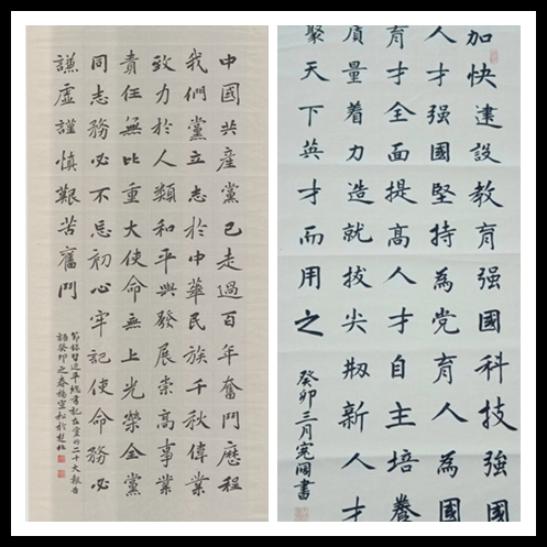 中國共產黨已走過百年奮鬥歷程
我們黨立志於中華民族千秋偉業
致力於人類和平與發展崇高事業
責任無比重大使命無上光榮全黨
同志務必不忘初心牢記使命務必
謙虛謹慎艱苦奮鬥
節錄習近平總書記在黨的二十大報告
語癸卯之春楊宝松於
加快建設教育强國科技强國
人才强國堅持為党育人為國
育才全面提高人才自主培養
質量着力造就拔尖刱新人才
聚天下英才而用之
癸卯三月書